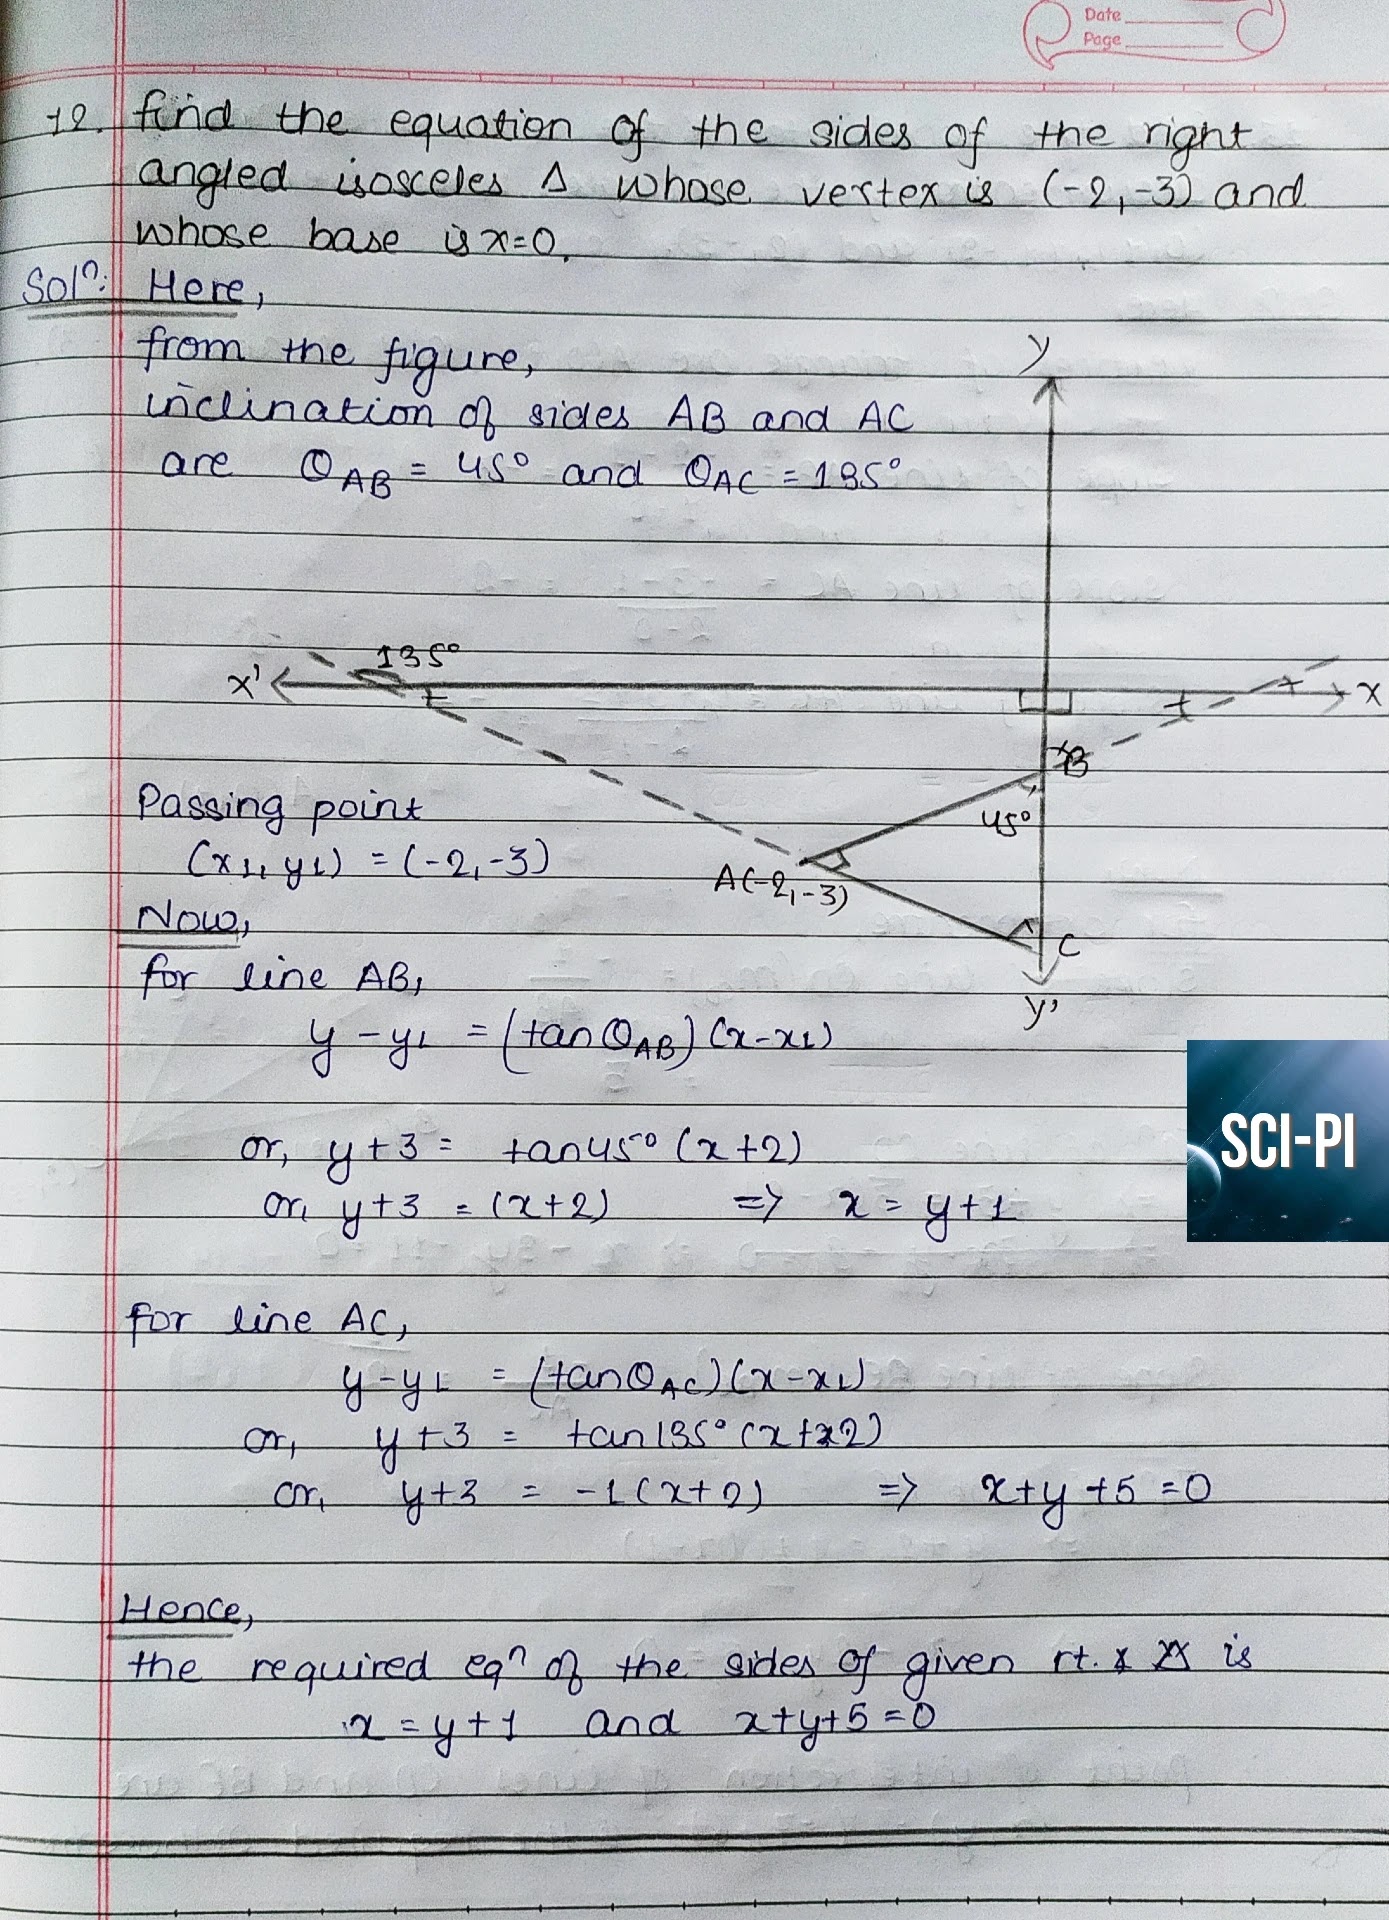 Date
Page
12. find the equation of the sides of the right
angled isosceles Δ whose vertex is (-2,-3) and
whose base is x=0.
Solⁿ: Here,
from the figure,
inclination of sides AB and AC
are θAB = 45° and θAC = 135°
y
135°
x'
x
B
45°
A(-2,-3)
C
y'
Passing point
(x1, y1) = (-2,-3)
Now,
for line AB,
y - y1 = (tanθAB) (x-x1)
or, y+3 = tan45° (x+2)
or, y+3 = (x+2) => x = y+1
for line AC,
y-y1 = (tanθAC)(x-x1)
or, y+3 = tan135° (x+2)
or, y+3 = -1(x+2) => x+y+5=0
Hence,
the required eqⁿ of the sides of given rt. is
x = y+1 and x+y+5=0
SCI-PI